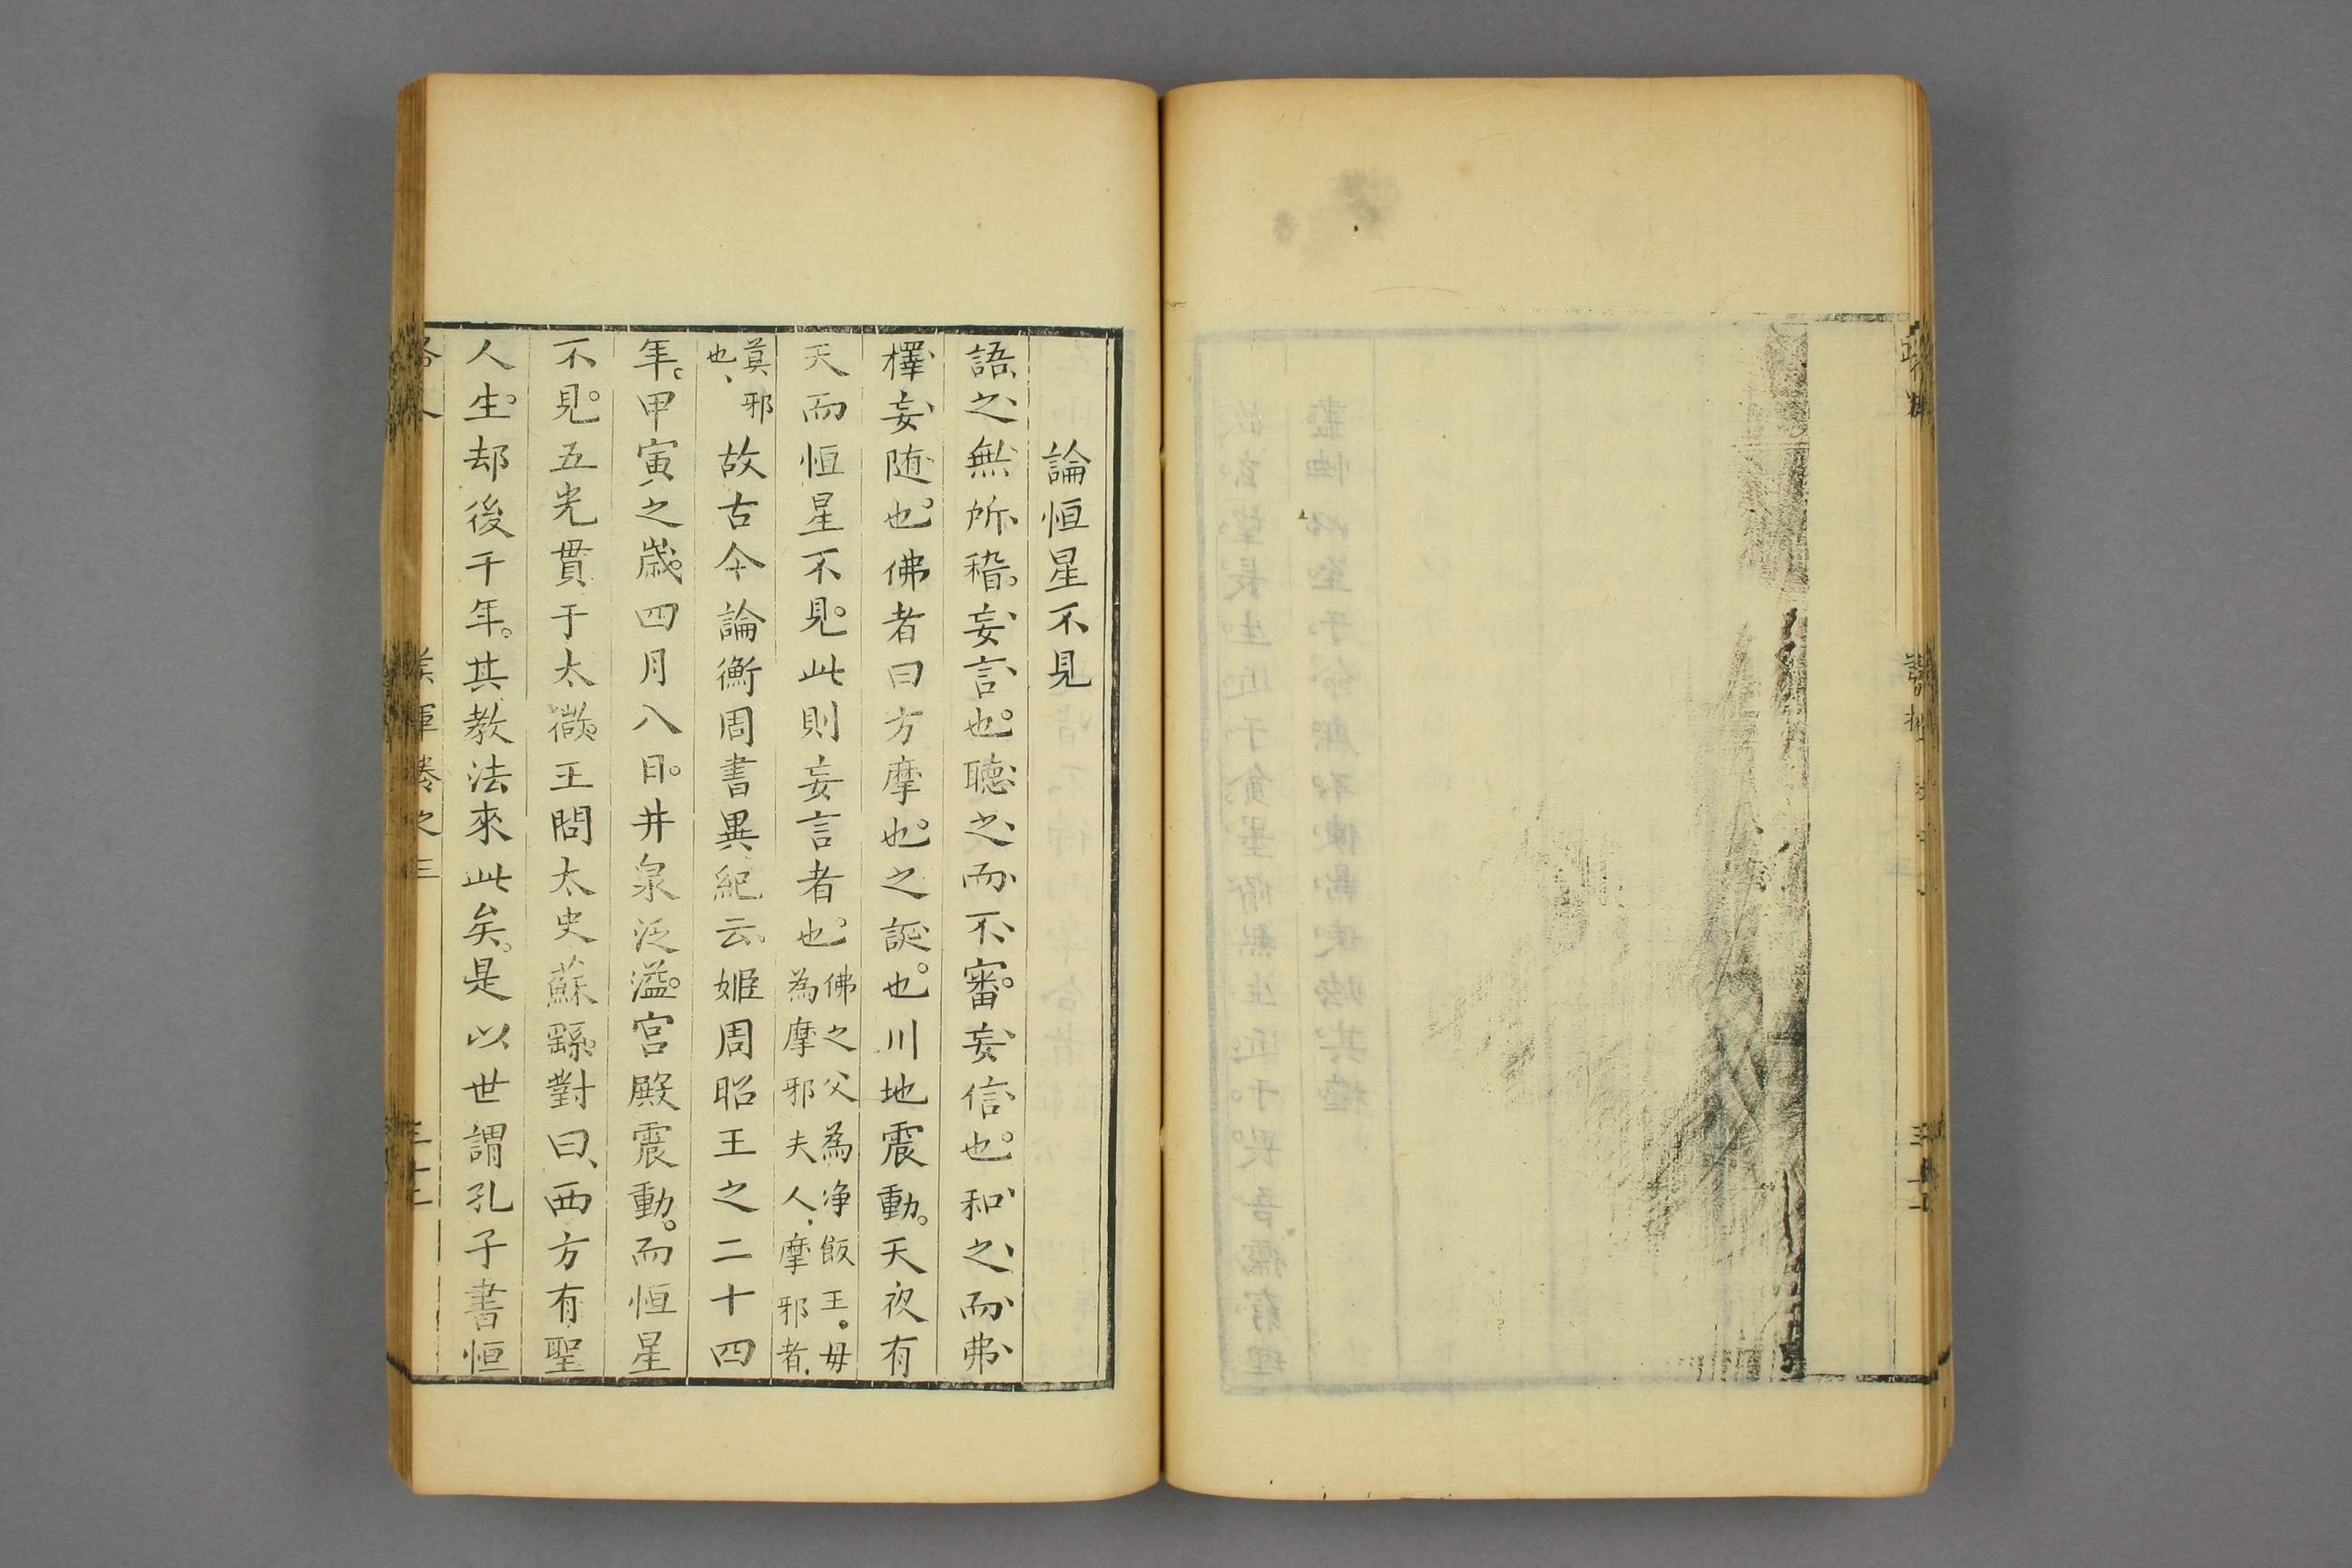 論恒星不見
語之無所稽妄言也聽之而不審妄信也和之而弗
擇妄随也佛者曰方摩也之誕也川地震動天夜有
天而恒星不見此則妄言者也佛之父為净飯王母為摩邪夫人摩邪者
莫邪也故古今論衡周書異紀云姬周昭王之二十四
年甲寅之歲四月八日井泉泛溢宫殿震動而恒星
不見五光貫于太微王問太史蘇繇對曰西方有聖
人生却後千年其教法來此矣是以世謂孔子書恒
卷之三